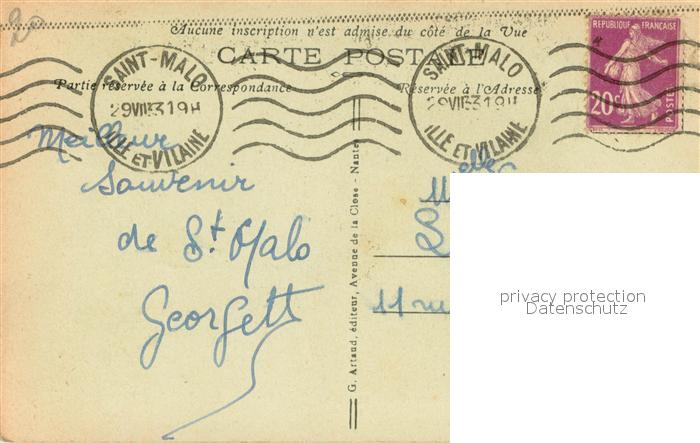 20
Aucune inscription n'est admise du côté de la Vue
CARTE POSTALE
Partie réservée à la Correspondance
Réservée à l'Adresse
SAINT-MALO
29 VII 31 19H
ILLE ET VILAINE
SAINT-MALO
29 VII 31 19H
ILLE ET VILAINE
REPUBLIQUE FRANÇAISE
20c
POSTES
Meilleur
Souvenir
de St Malo
Georgett
G. Artaud, éditeur, Avenue de la Close - Nantes
11 rue
privacy protection
Datenschutz